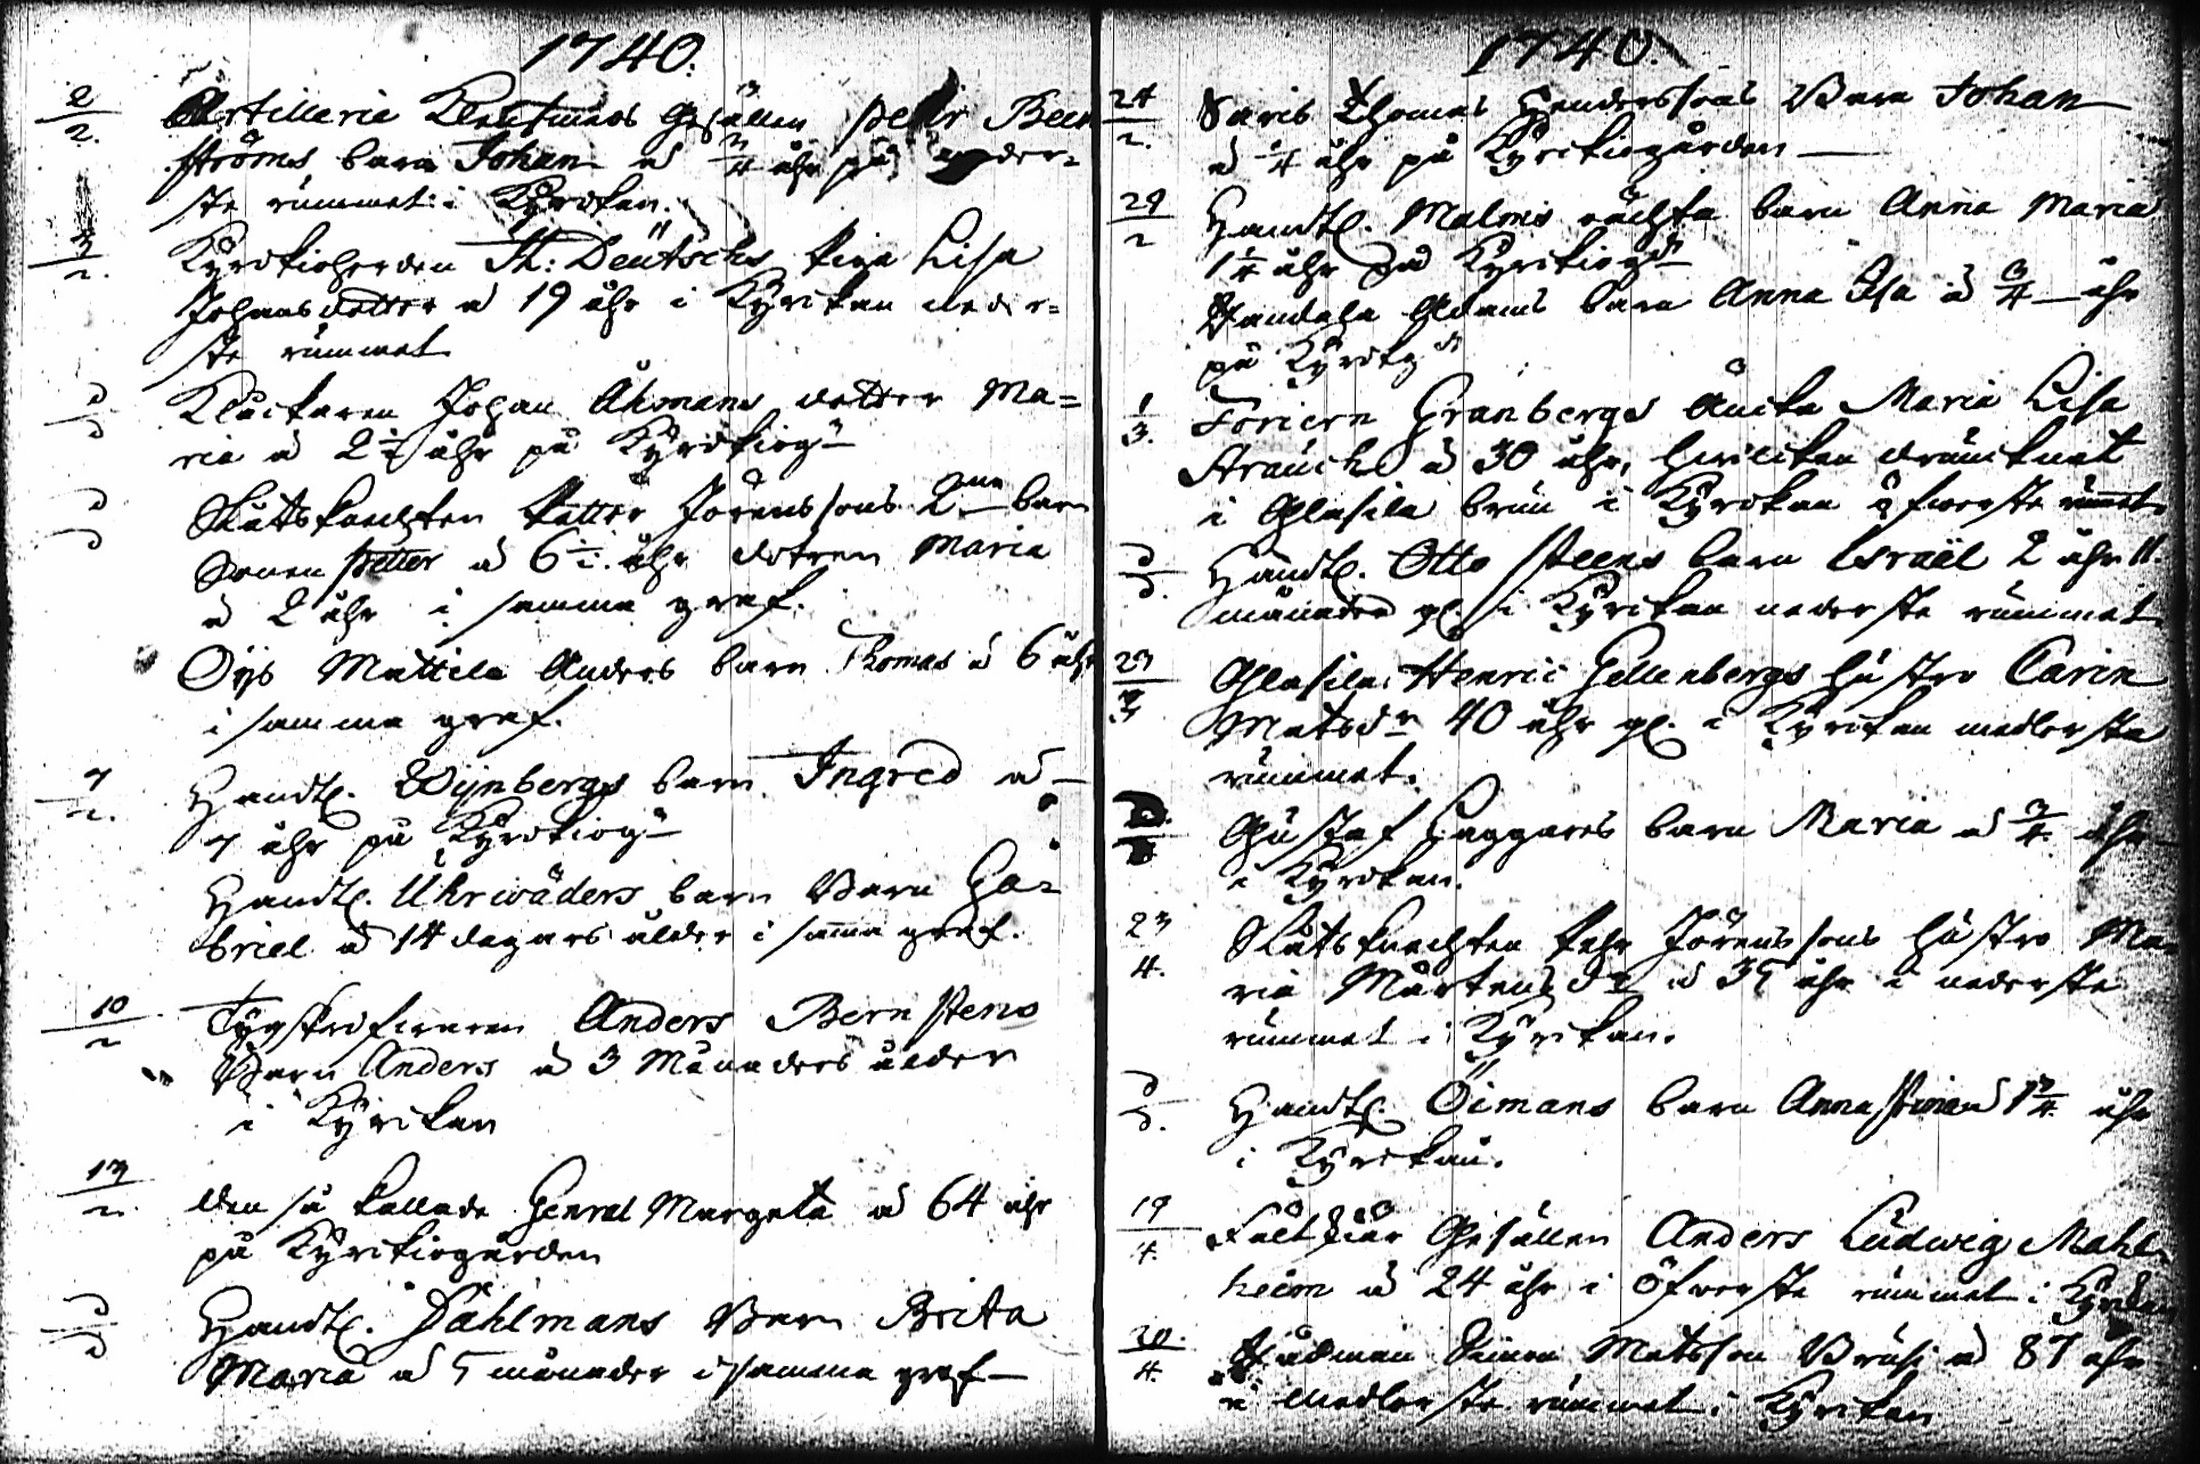 1740.
2/2. Artillerie Gesällen Petter Beck
ströms barn Johan a 3/4 åhr på neder=
ste rummet i Kyrckan.
3/2. Kyrckioherden Th: Deutschs piga Lisa
Johansdotter a 19 åhr i Kyrckan neder=
ste rummet
d/d Klåckaren Johan Åhmans dotter Ma=
ria a 2 1/2 åhr på Kyrckiog:n
d/d Skutsknechten Petter Jörenssons 2ne barn
Sonen Petter a 6 1/2 åhr dotren Maria
a 2 åhr i samma graf.
Öijs Mattila Anders barn Thomas a 6 åhr
i samma graf.
7/2. Handl. Wijnbergs barn Ingred a
7 åhr på Kyrckiog:n
Handl. Uhrwäders barn Barn Ga=
briel a 14 dagars ålder i samma graf.
10/2 Tygskrifwaren Anders Bernstens
Barn Anders a 3 Månaders ålder
i Kyrckan
13/2. den så kallade Genral Margeta a 64 åhr
på Kyrckiogården
d/d Handl. Dahlmans Barn Brita
Maria a 5 månader i samma graf
1740.
24/2. Saris Thomas Henderssons Barn Johan
a 1/4 åhr på Kyrckiogården
29/2 Handl. Malmis ächta barn Anna Maria
1 1/4 åhr på Kyrckiog:n
Adams barn Anna Lisa a 3/4 åhr
på Kyrckg:n
1/3. Foriern Granbergs Äncka Maria Lisa
Strauch a 30 åhr, hwilcken drunknat
i brun i Kyrckan öfwerste rumet
d/d. Handl. Otto Steens barn Israël 2 åhr 11.
månader gl. i Kyrckan nederste rummet
23/3 Henric Gellenbergs hustro Carin
Matsdr 40 åhr gl. i Kyrckan medlerste
rummet.
Gustaf Haggars barn Maria a 3/4 åhr
i Kyrckan.
23/4. Skutsknechten Pehr Jörenssons hustro Ma=
ria Mårtensdr a 35 åhr i nederste
rummet i Kyrckan.
d/d. Handl. Öimans barn Anna Stina 1 3/4 åhr
i Kyrckan.
19/4. Fältskiär Gesällen Anders Ludwig Mahl=
heim a 24 åhr i öfwerste rummet i Kyrckan
20./4. Rådman Simon Matsson Brusi a 87 åhr
i Medlerste rummet i Kyrckan